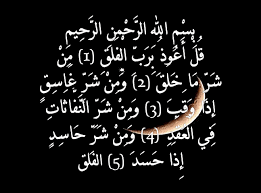 بِسْمِ اللهِ الرَّحْمٰنِ الرَّحِيْمِ
قُلْ أَعُوذُ بِرَبِّ الْفَلَقِ (1) مِنْ
شَرِّ مَا خَلَقَ (2) وَمِنْ شَرِّ غَاسِقٍ
إِذَا وَقَبَ (3) وَمِنْ شَرِّ النَّفَّاثَاتِ
فِي الْعُقَدِ (4) وَمِنْ شَرِّ حَاسِدٍ
إِذَا حَسَدَ (5) الفلق